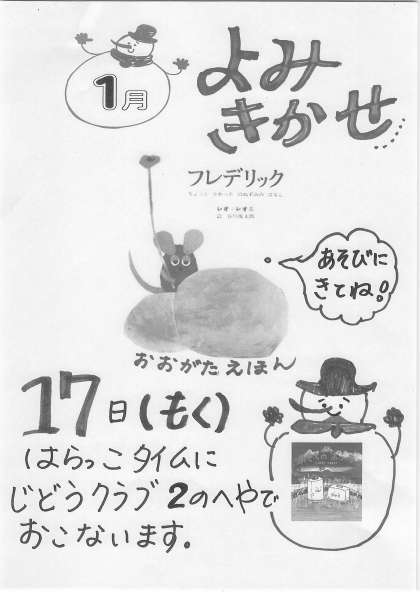 1月
よみ
きかせ
フレデリック
ちょっと かわった のねずみの はなし
レオ・レオニ
あそびに
きてね!
おおがたえほん
17日(もく)
はらっこタイムに
じどうクラブ2のへやで
おこないます。